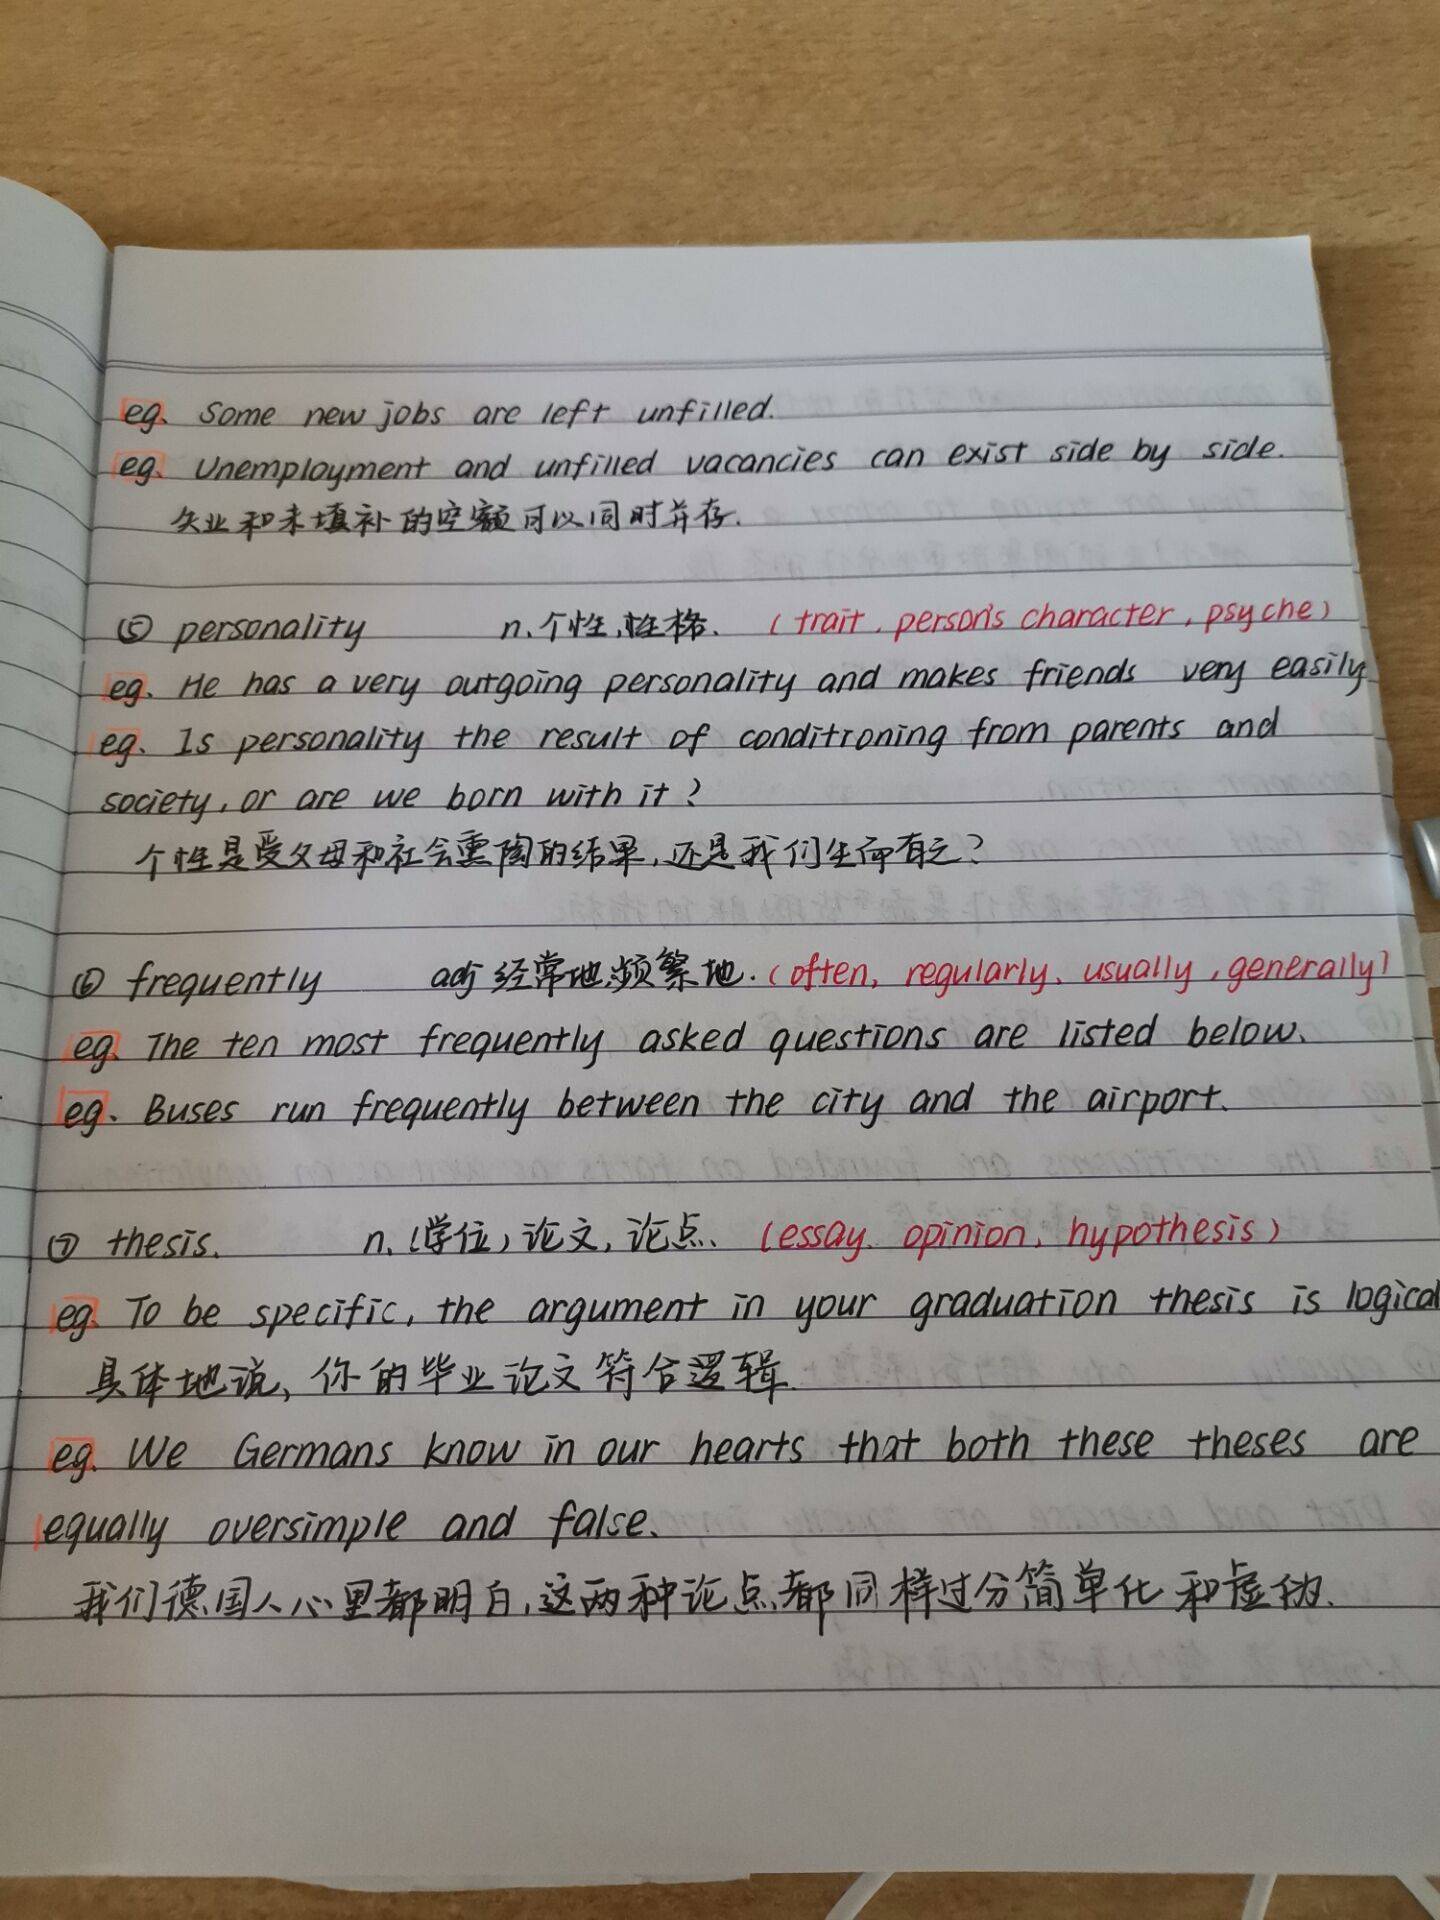 eg. Some new jobs are left unfilled.
eg. Unemployment and unfilled vacancies can exist side by side.
失业和未填补的空额可以同时并存.
⑤ personality n.个性,性格. (trait, person's character, psyche)
eg. He has a very outgoing personality and makes friends very easily
eg. Is personality the result of conditioning from parents and
society, or are we born with it?
个性是受父母和社会熏陶的结果,还是我们生而有之?
⑥ frequently adj 经常地,频繁地. (often, regularly, usually, generally)
eg. The ten most frequently asked questions are listed below.
eg. Buses run frequently between the city and the airport.
⑦ thesis. n. (学位) 论文, 论点. (essay, opinion, hypothesis)
eg. To be specific, the argument in your graduation thesis is logical
具体地说, 你的毕业论文符合逻辑.
eg. We Germans know in our hearts that both these theses are
equally oversimple and false.
我们德国人心里都明白,这两种论点都同样过分简单化和虚伪.